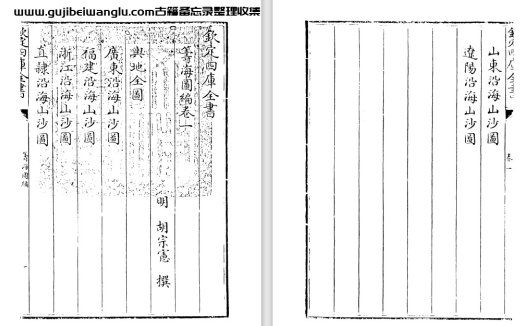 www.gujibeiwanglu.com古籍备忘录整理收集
欽定四庫全書
籌海圖編卷一
明 胡宗憲 撰
輿地全圖
廣東沿海山沙圖
福建沿海山沙圖
浙江沿海山沙圖
直隸沿海山沙圖
欽定四庫全書
籌海圖編
欽定四庫全書
卷一
山東沿海山沙圖
遼陽沿海山沙圖